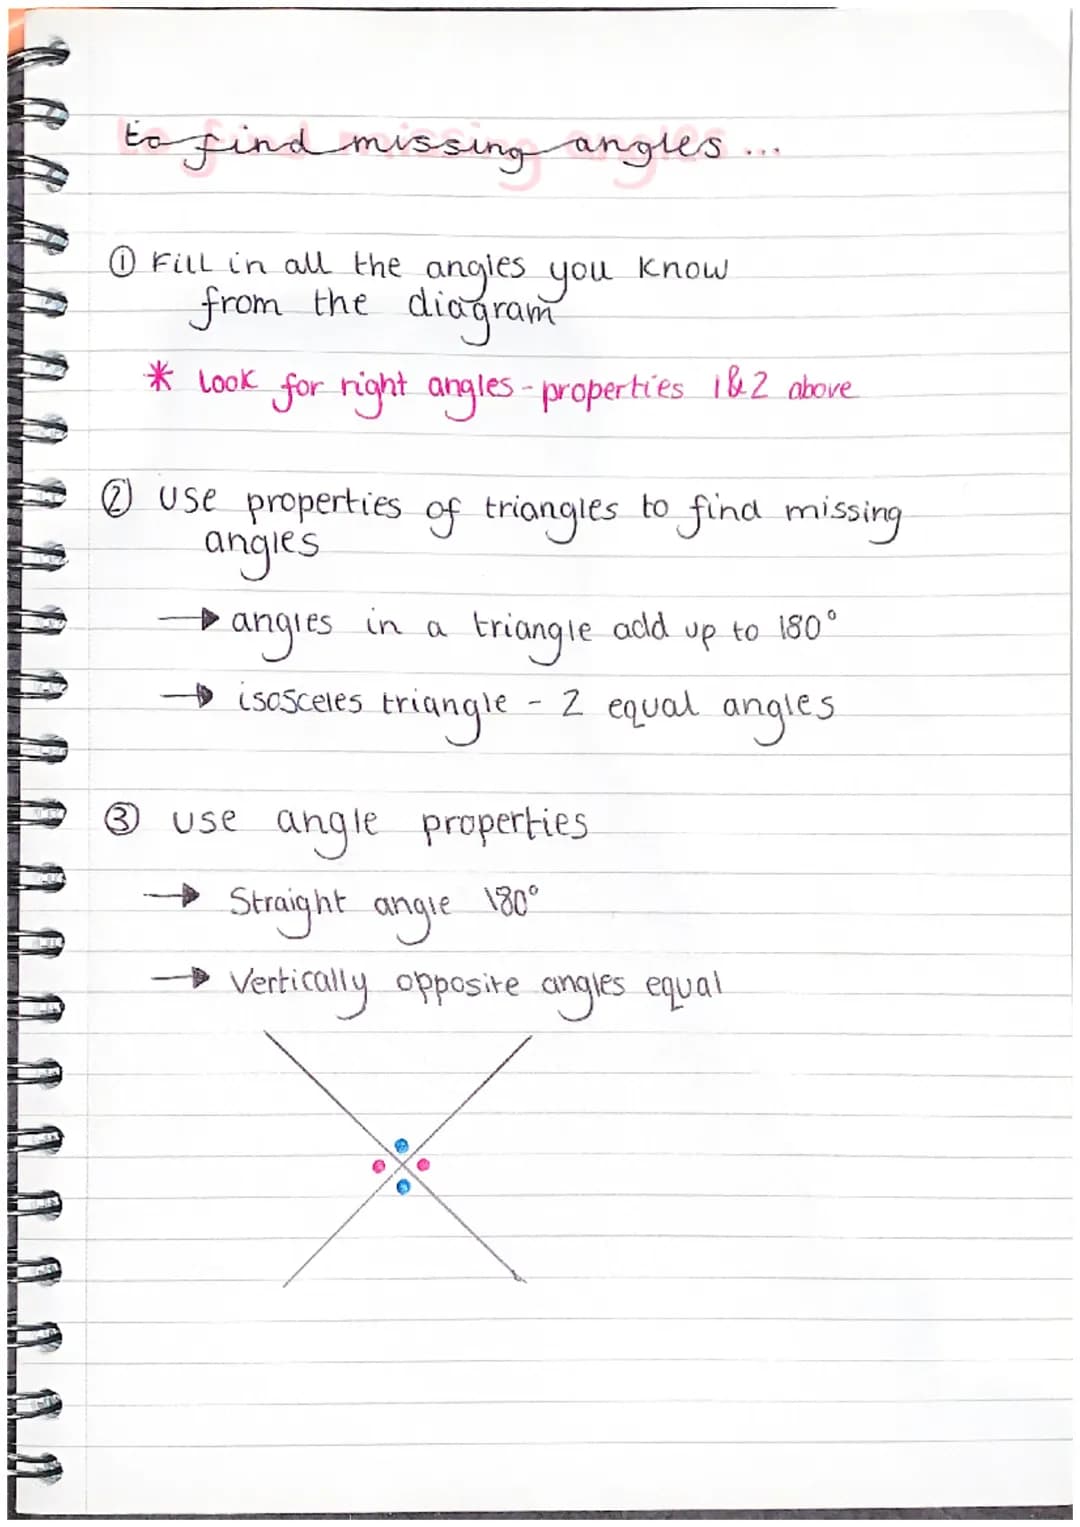 to find missing angles ...
① Fill in all the angles you know
from the diagram
* Look for right angles - properties 1&2 above
② Use properties of triangles to find missing
angles
→ angles in a triangle add up to 180°
→ isosceles triangle - 2 equal angles
③ use angle properties
→ Straight angle 180°
→ Vertically opposite angles equal